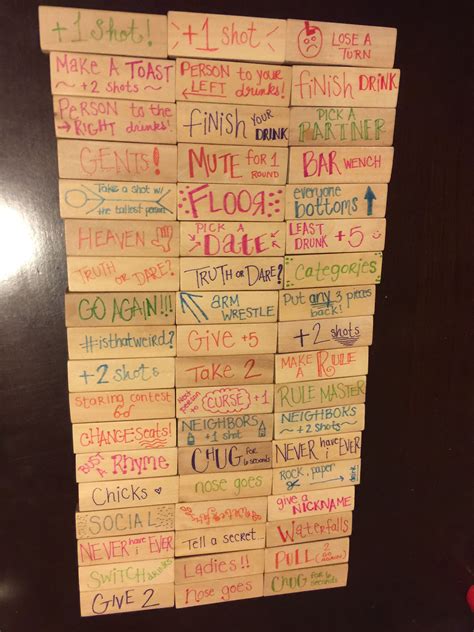 +1 Shot!
+1 shot
LOSE A
TURN
MAKE A TOAST
~ +2 shots ~
PERSON to your
LEFT drinks!
finish DRINK
PERSON to the
RIGHT drinks!
finish YOUR
DRINK
PICK A
PARTNER
GENTS!
MUTE for 1
ROUND
BAR WENCH
Take a shot w/
the tallest person
FLOOR
everyone
bottoms
HEAVEN
PICK A
Date
LEAST
DRUNK +5
TRUTH OR DARE?
TRUTH OR DARE?
Categories
GO AGAIN!!!
ARM
WRESTLE
Put any 3 pieces
back!
#isthatweird?
Give +5
+2 shots
+2 shots
Take 2
MAKE
A RULE
staring contest
Next
person to
CURSE +1
RULE MASTER
CHANGE Seats!
NEIGHBORS
+1 shot
NEIGHBORS
~ +2 shots ~
Rhyme
CHUG for
6 seconds
NEVER have i EVER
Chicks
nose goes
ROCK, paper
SOCIAL
give a
NICKNAME
NEVER have i EVER
Tell a secret...
Waterfalls
SWITCH drinks
Ladies!!
PULL (2)
GIVE 2
nose goes
CHUG for 6
seconds